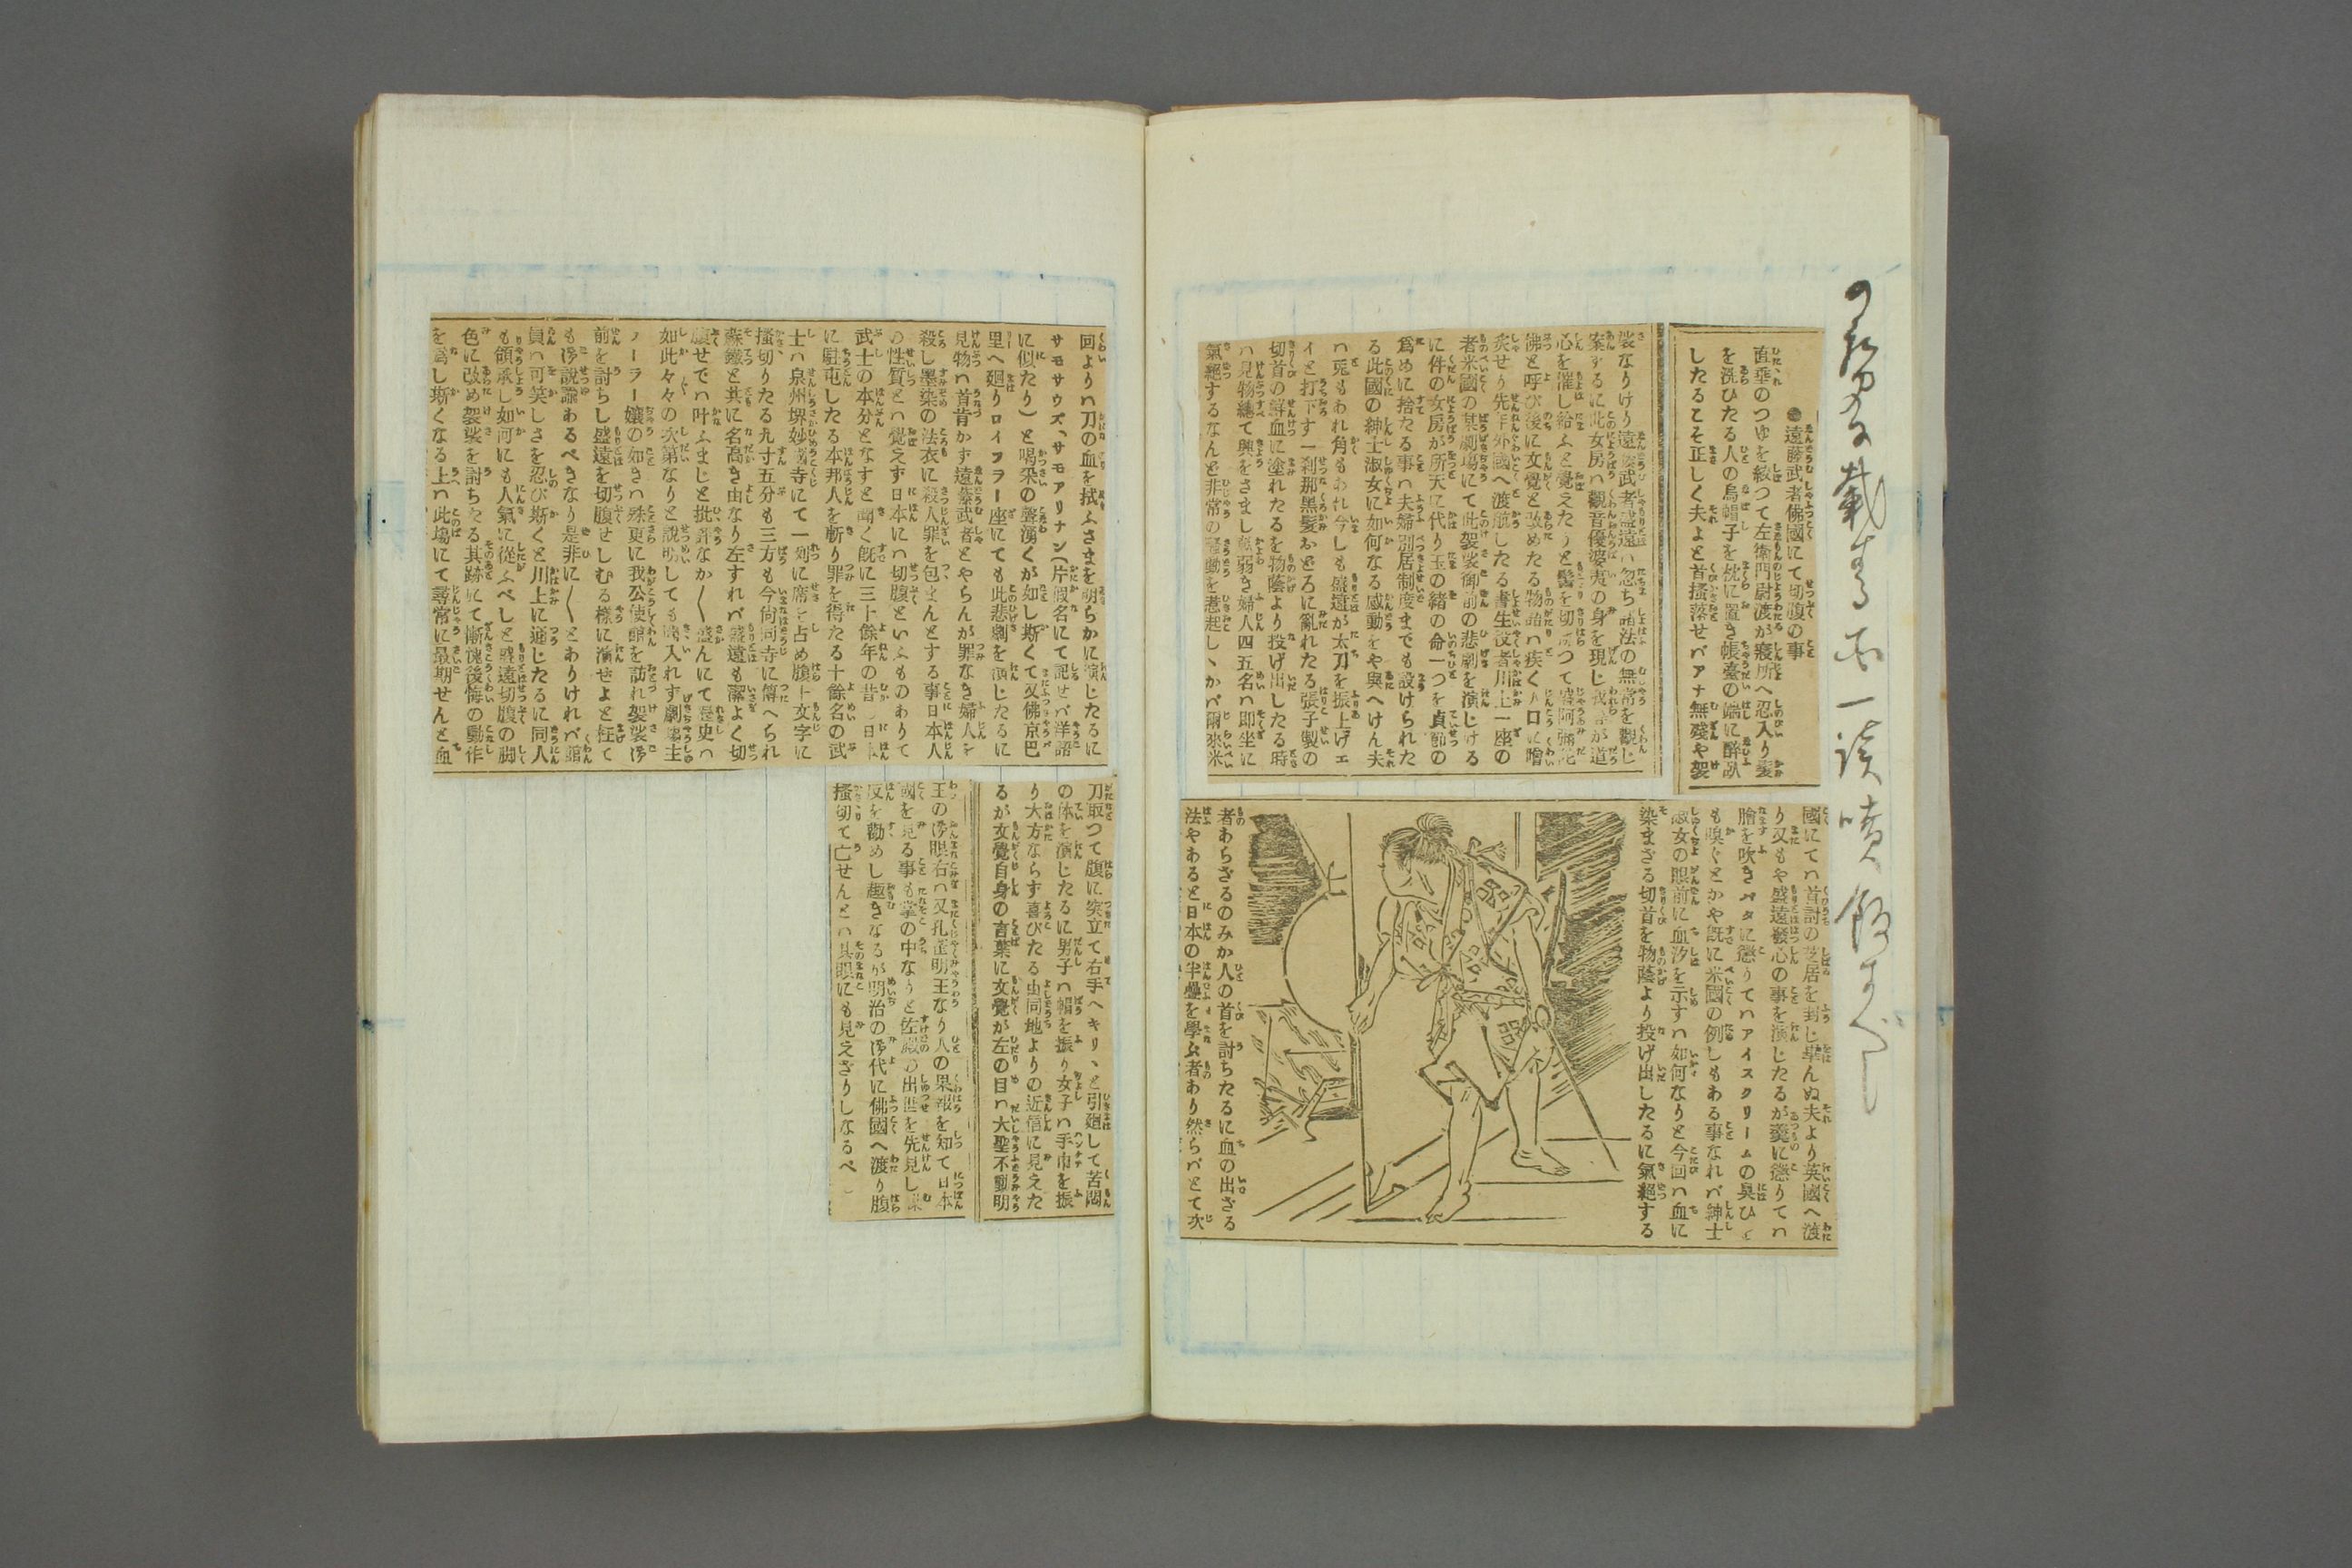 ●遠藤武者佛國にて切腹の事
直垂のつゆを絞つて左衛門尉渡が寢所へ忍入り髪
を洗ひたる人の烏帽子を枕に置き帳臺の端に醉臥
したるこそ正しく夫よと首搔落せバアナ無殘や袈
裟なりけり遠藤武者盛遠ハ忽ち諸法の無常を觀じ
案ずるに此女房ハ觀音優婆夷の身を現じ我等が道
心を催し給ふと覺えたりと髻を切拂つて
佛と呼び後に文覺と改めたる物語ハ疾く人口に膾
炙せり先年外國へ渡航したる書生役者川上一座の
者米國の某劇塲にて此袈裟御前の悲劇を演じける
に件の女房が所天に代り玉の緒の命一つを貞節の
爲めに捨たる事ハ夫婦別居制度までも設けられた
る此國の紳士淑女に如何なる感動をや與へけん夫
ハ兎もあれ角もあれ今しも盛遠が太刀を振上げエ
イと打下す一刹那黑髪おどろに亂れたる張子製の
切首の鮮血に塗れたるを物蔭より投げ出したる時
ハ見物總て興をさまし弱き婦人四五名ハ即坐に
氣絕するなんど非常の騷動を惹起しゝかバ爾來米
國にてハ首討の芝居を封じ畢んぬ夫より英國へ渡
り又もや盛遠發心の事を演じたるが羮に懲りてハ
膾を吹きバタに懲りてハアイスクリームの臭ひを
も嗅ぐとかや既に米國の例しもある事なれバ紳士
淑女の眼前に血汐を示すハ如何なりと今回ハ血に
染まざる切首を物蔭より投げ出したるに氣絕する
者あらざるのみか人の首を討ちたるに血の出ざる
法やあると日本の半疊を學ぶ者あり然らバとて次
回よりハ刀の血を拭ふさまを明らかに演じたるに
サモサウズ、サモアリナン(片假名にて記せバ洋語
に似たり)と喝采の聲湧くが如し斯くて又佛京巴
里へ廻りロイフラー座にても此悲劇を演じたるに
見物ハ首肯かず遠藤武者とやらんが罪なき婦人を
殺し墨染の法衣に殺人罪を包まんとする事日本人
の性質とハ覺えず日本にハ切腹といふものありて
武士の本分となすと聞く既に三十餘年の昔し日本
に屯したる本邦人を斬り罪を得たる十餘名の武
士ハ泉州堺妙國寺にて一列に席を占め腹十文字に
搔切りたる九寸五分も三方も今尚同寺に傳へられ
蘇鐵と共に名高き由なり左すれバ盛遠も潔よく切
腹せでハ叶ふまじと批評なか〱盛んにて歷史ハ
如此々々の次第なりと說明しても聽入れず劇塲主
フーラー孃の如きハ殊更に我公使館を訪れ袈裟御
前を討らし盛遠を切腹せしむる樣に演せよと枉て
も御說諭あるべきなり是非に〱とありけれバ館
員ハ可笑しさを忍び斯くと川上に通じたるに同人
も領承し如何にも人氣に從ふべしと盛遠切腹の脚
色に改め袈裟を討ちたる其跡にて慚愧後悔の動作
を爲し斯くなる上ハ此塲にて尋常に最期せんと血
刀取つて腹に突立て右手へキリヽと引廻して苦悶
の体を演じたるに男子ハ帽を振り女子ハ手巾を振
り大方ならず喜びたる由同地よりの近信に見えた
るが文覺自身の言葉に文覺が左の目ハ大聖不動明
王の御眼右ハ又孔雀明王なり人の果報を知て日本
國を見る事も掌の中なりと佐殿の出世を先見し謀
反を勸めし趣きなるが明治の御代に佛國へ渡り腹
搔切て亡せんとハ其眼にも見えざりしなるべ